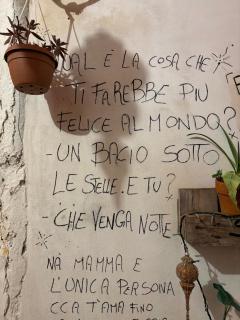 QUAL È LA COSA CHE
TI FAREBBE PIÙ
FELICE AL MONDO?
-UN BACIO SOTTO
LE STELLE. E TU?
-CHE VENGA NOTTE
NÀ MAMMA E
L'UNICA PERSONA
CCA T'AMA FINO